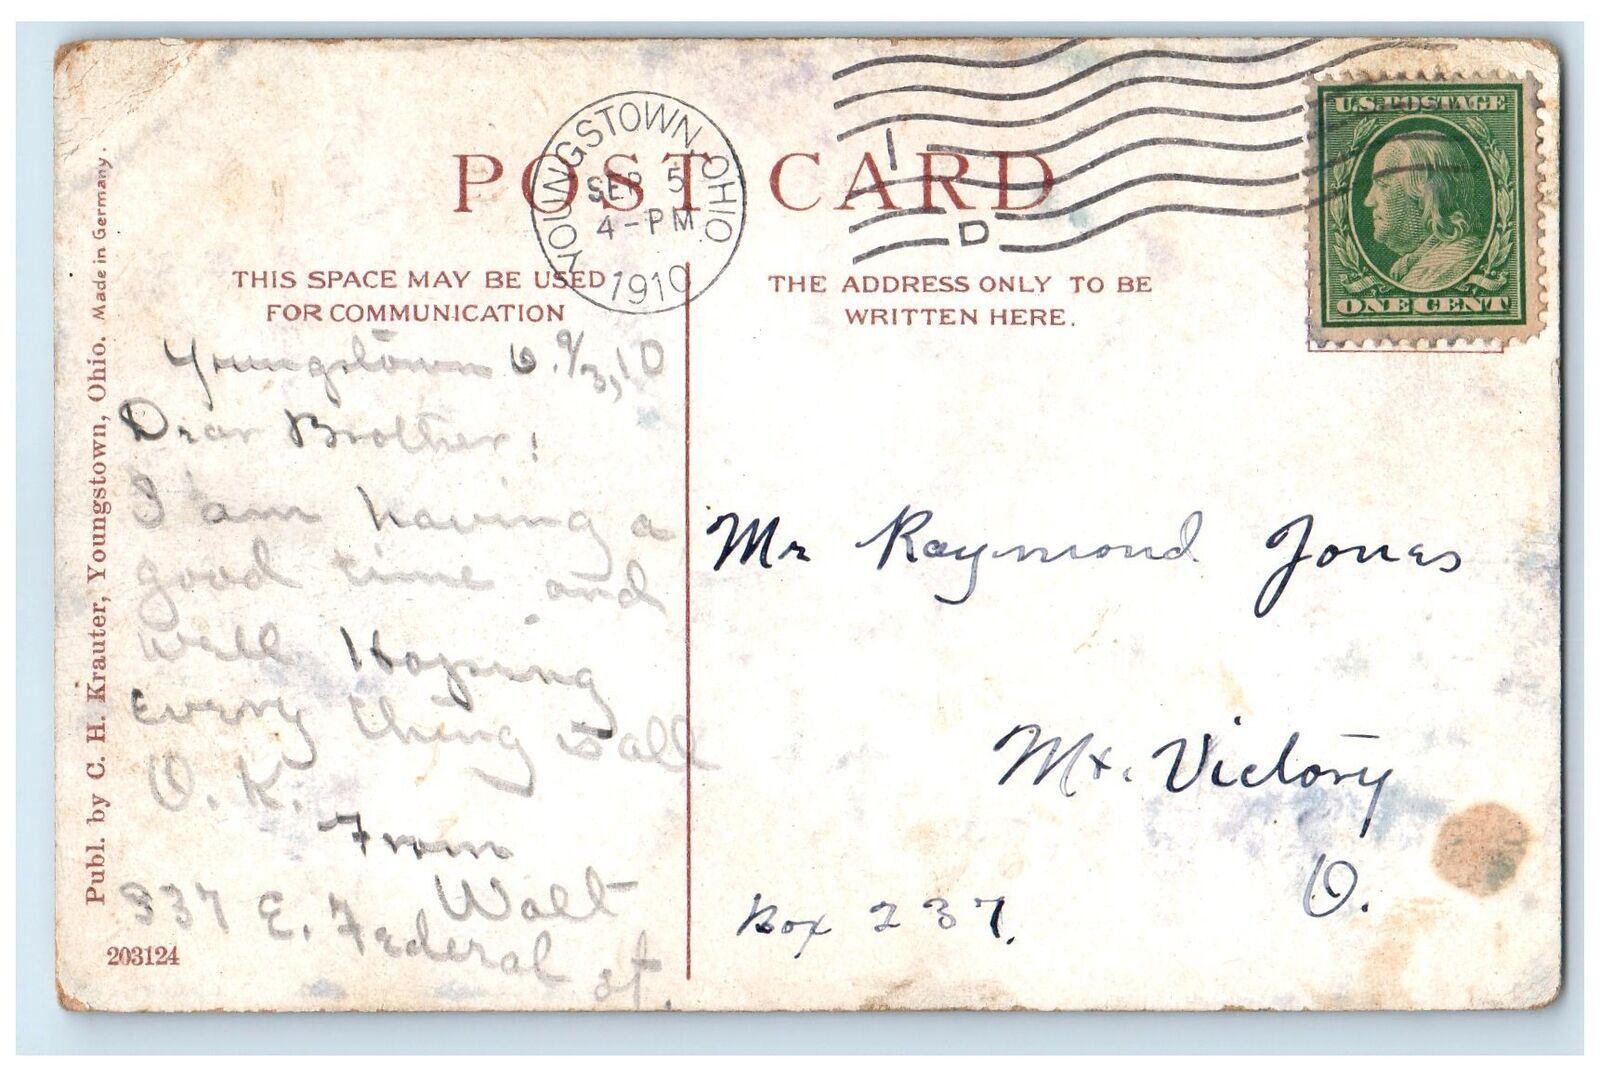 POST CARD
YOUNGSTOWN, OHIO.
SEP 5
4-PM
1910
I
D
U.S. POSTAGE
ONE CENT
THIS SPACE MAY BE USED
FOR COMMUNICATION
THE ADDRESS ONLY TO BE
WRITTEN HERE.
Youngstown O. 9/3, 10
Dear Brother!
I am having a
good time and
well Hoping
Every thing is all
O. K.
From
Walt
337 E. Federal
st.
Mr Raymond Jones
Mt. Victory
O.
Box 237.
Publ. by C. H. Krauter, Youngstown, Ohio. Made in Germany.
203124